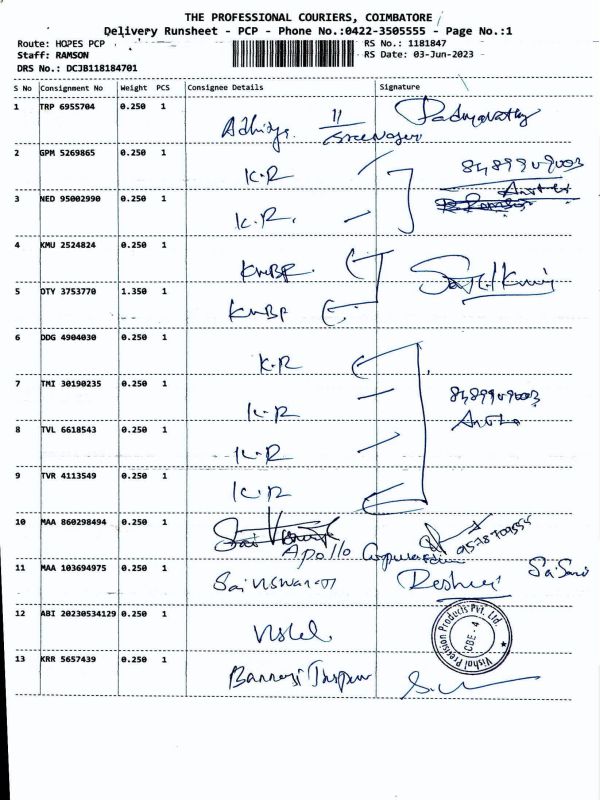 THE PROFESSIONAL COURIERS, COIMBATORE
Delivery Runsheet - PCP - Phone No.:0422-3505555 - Page No.:1
Route: HOPES PCP RS No.: 1181847
Staff: RAMSON RS Date: 03-Jun-2023
DRS No.: DCJB118184701
S No Consignment No Weight PCS Consignee Details Signature
1 TRP 6955704 0.250 1
2 GPM 5269865 0.250 1 K.R
3 NED 95002990 0.250 1 K.R.
4 KMU 2524824 0.250 1
5 DTY 3753770 1.350 1
6 DDG 4904030 0.250 1 K.R
7 TMI 30190235 0.250 1 K.R
8 TVL 6618543 0.250 1 K.R
9 TVR 4113549 0.250 1 K.R
10 MAA 860298494 0.250 1
Apollo
11 MAA 103694975 0.250 1
12 ABI 20230534129 0.250 1 Vishal Precision Products Pvt. Ltd. CBE - 4
13 KRR 5657439 0.250 1